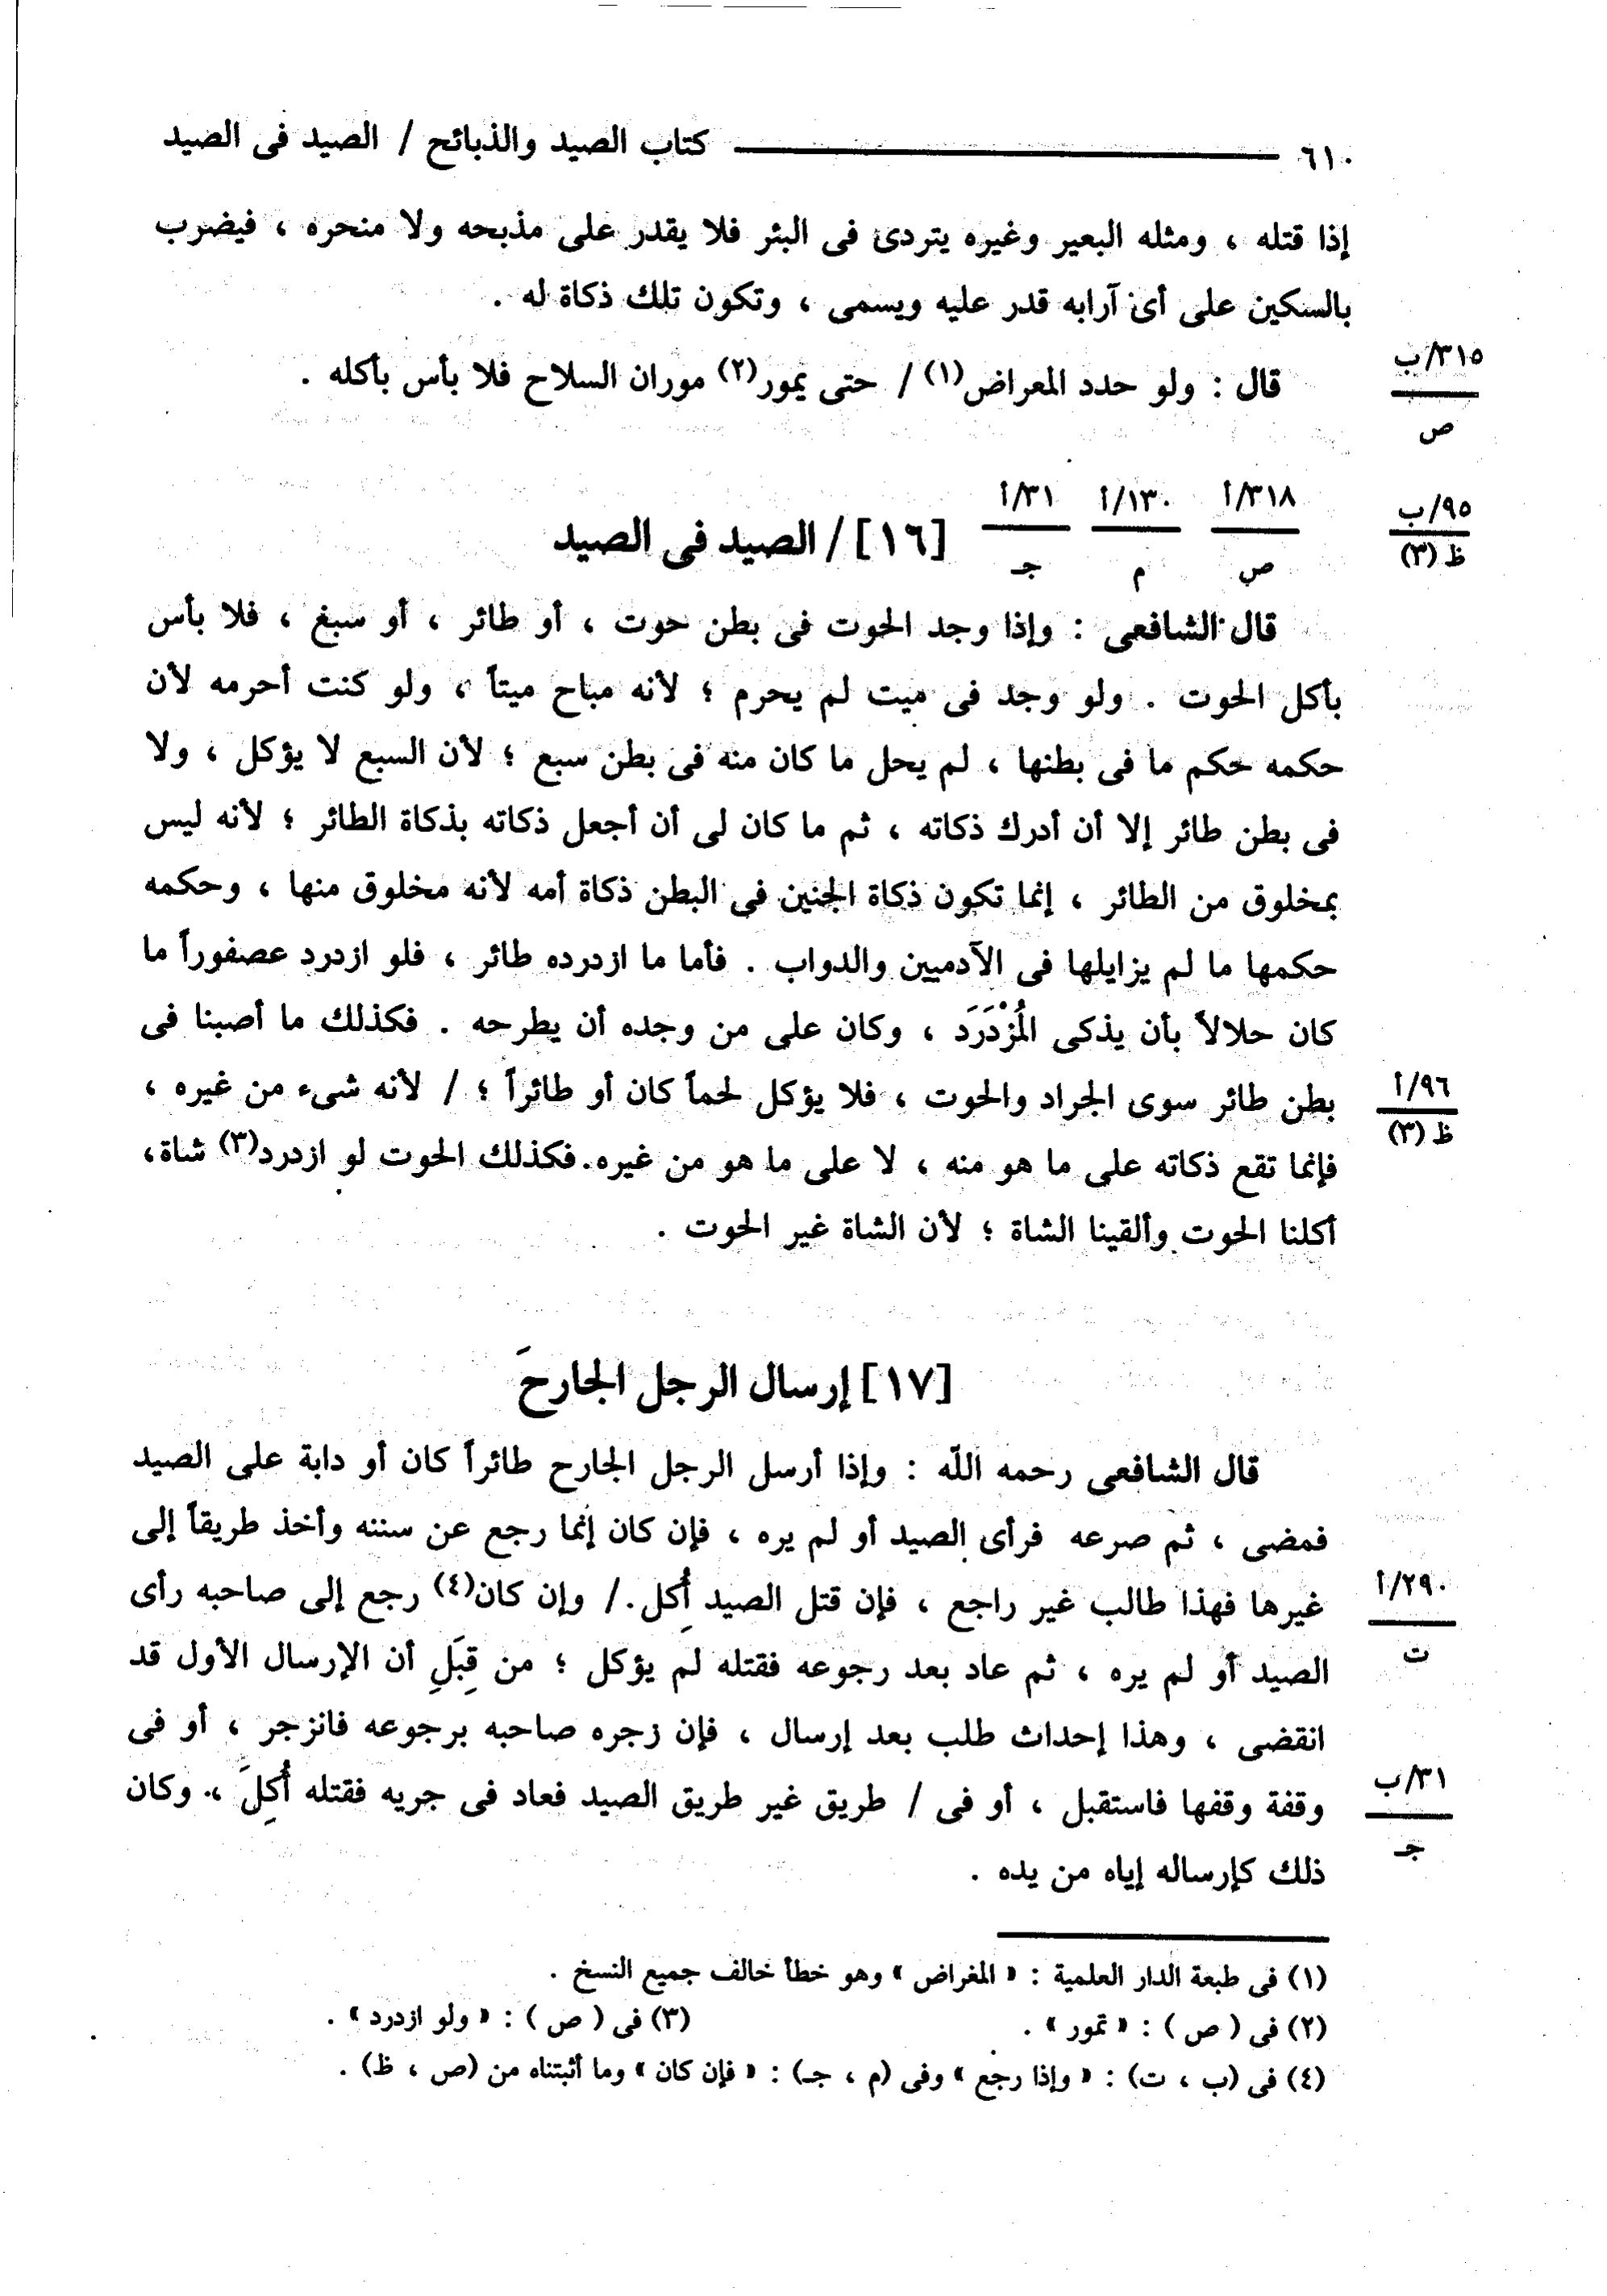 ٦١٠ كتاب الصيد والذبائح / الصيد فى الصيد
إذا قتله ، ومثله البعير وغيره يتردى فى البئر فلا يقدر على مذبحه ولا منحره ، فيضرب
بالسكين على أى آرابه قدر عليه ويسمى ، وتكون تلك ذكاة له .
٣١٥/ب
ص
قال : ولو حدد المعراض(١) / حتى يمور(٢) موران السلاح فلا بأس بأكله .
٩٥/ب
ظ (٣)
٣١٨/أ
ص
١٣٠/أ
م
٣١/أ
جـ
[١٦] / الصيد فى الصيد
قال الشافعى : وإذا وجد الحوت فى بطن حوت ، أو طائر ، أو سبغ ، فلا بأس
بأكل الحوت . ولو وجد فى ميت لم يحرم ؛ لأنه مباح ميتاً ، ولو كنت أحرمه لأن
حكمه حكم ما فى بطنها ، لم يحل ما كان منه فى بطن سبع ؛ لأن السبع لا يؤكل ، ولا
فى بطن طائر إلا أن أدرك ذكاته ، ثم ما كان لى أن أجعل ذكاته بذكاة الطائر ؛ لأنه ليس
بمخلوق من الطائر ، إنما تكون ذكاة الجنين فى البطن ذكاة أمه لأنه مخلوق منها ، وحكمه
حكمها ما لم يزايلها فى الآدميين والدواب . فأما ما ازدرده طائر ، فلو ازدرد عصفوراً ما
كان حلالاً بأن يذكى المُزْدَرَد ، وكان على من وجده أن يطرحه . فكذلك ما أصبنا فى
بطن طائر سوى الجراد والحوت ، فلا يؤكل لحماً كان أو طائراً ؛ / لأنه شىء من غيره ،
٩٦/أ
ظ (٣)
فإنما تقع ذكاته على ما هو منه ، لا على ما هو من غيره. فكذلك الحوت لو ازدرد(٣) شاة،
أكلنا الحوت وألقينا الشاة ؛ لأن الشاة غير الحوت .
[١٧] إرسال الرجل الجارحَ
قال الشافعى رحمه الله : وإذا أرسل الرجل الجارح طائراً كان أو دابة على الصيد
فمضى ، ثم صرعه فرأى الصيد أو لم يره ، فإن كان إنما رجع عن سننه وأخذ طريقاً إلى
غيرها فهذا طالب غير راجع ، فإن قتل الصيد أُكِل. / وإن كان(٤) رجع إلى صاحبه رأى
٢٩٠/أ
ت
الصيد أو لم يره ، ثم عاد بعد رجوعه فقتله لم يؤكل ؛ من قِبَلِ أن الإرسال الأول قد
انقضى ، وهذا إحداث طلب بعد إرسال ، فإن زجره صاحبه برجوعه فانزجر ، أو فى
وقفة وقفها فاستقبل ، أو فى / طريق غير طريق الصيد فعاد فى جريه فقتله أُكِلَ ، وكان
٣١/ب
جـ
ذلك كإرساله إياه من يده .
(١) فى طبعة الدار العلمية : « المغراض » وهو خطأ خالف جميع النسخ .
(٢) فى ( ص ) : « تمور » . (٣) فى ( ص ) : « ولو ازدرد » .
(٤) فى (ب ، ت) : « وإذا رجع » وفى (م ، جـ) : « فإن كان » وما أثبتناه من (ص ، ظ) .